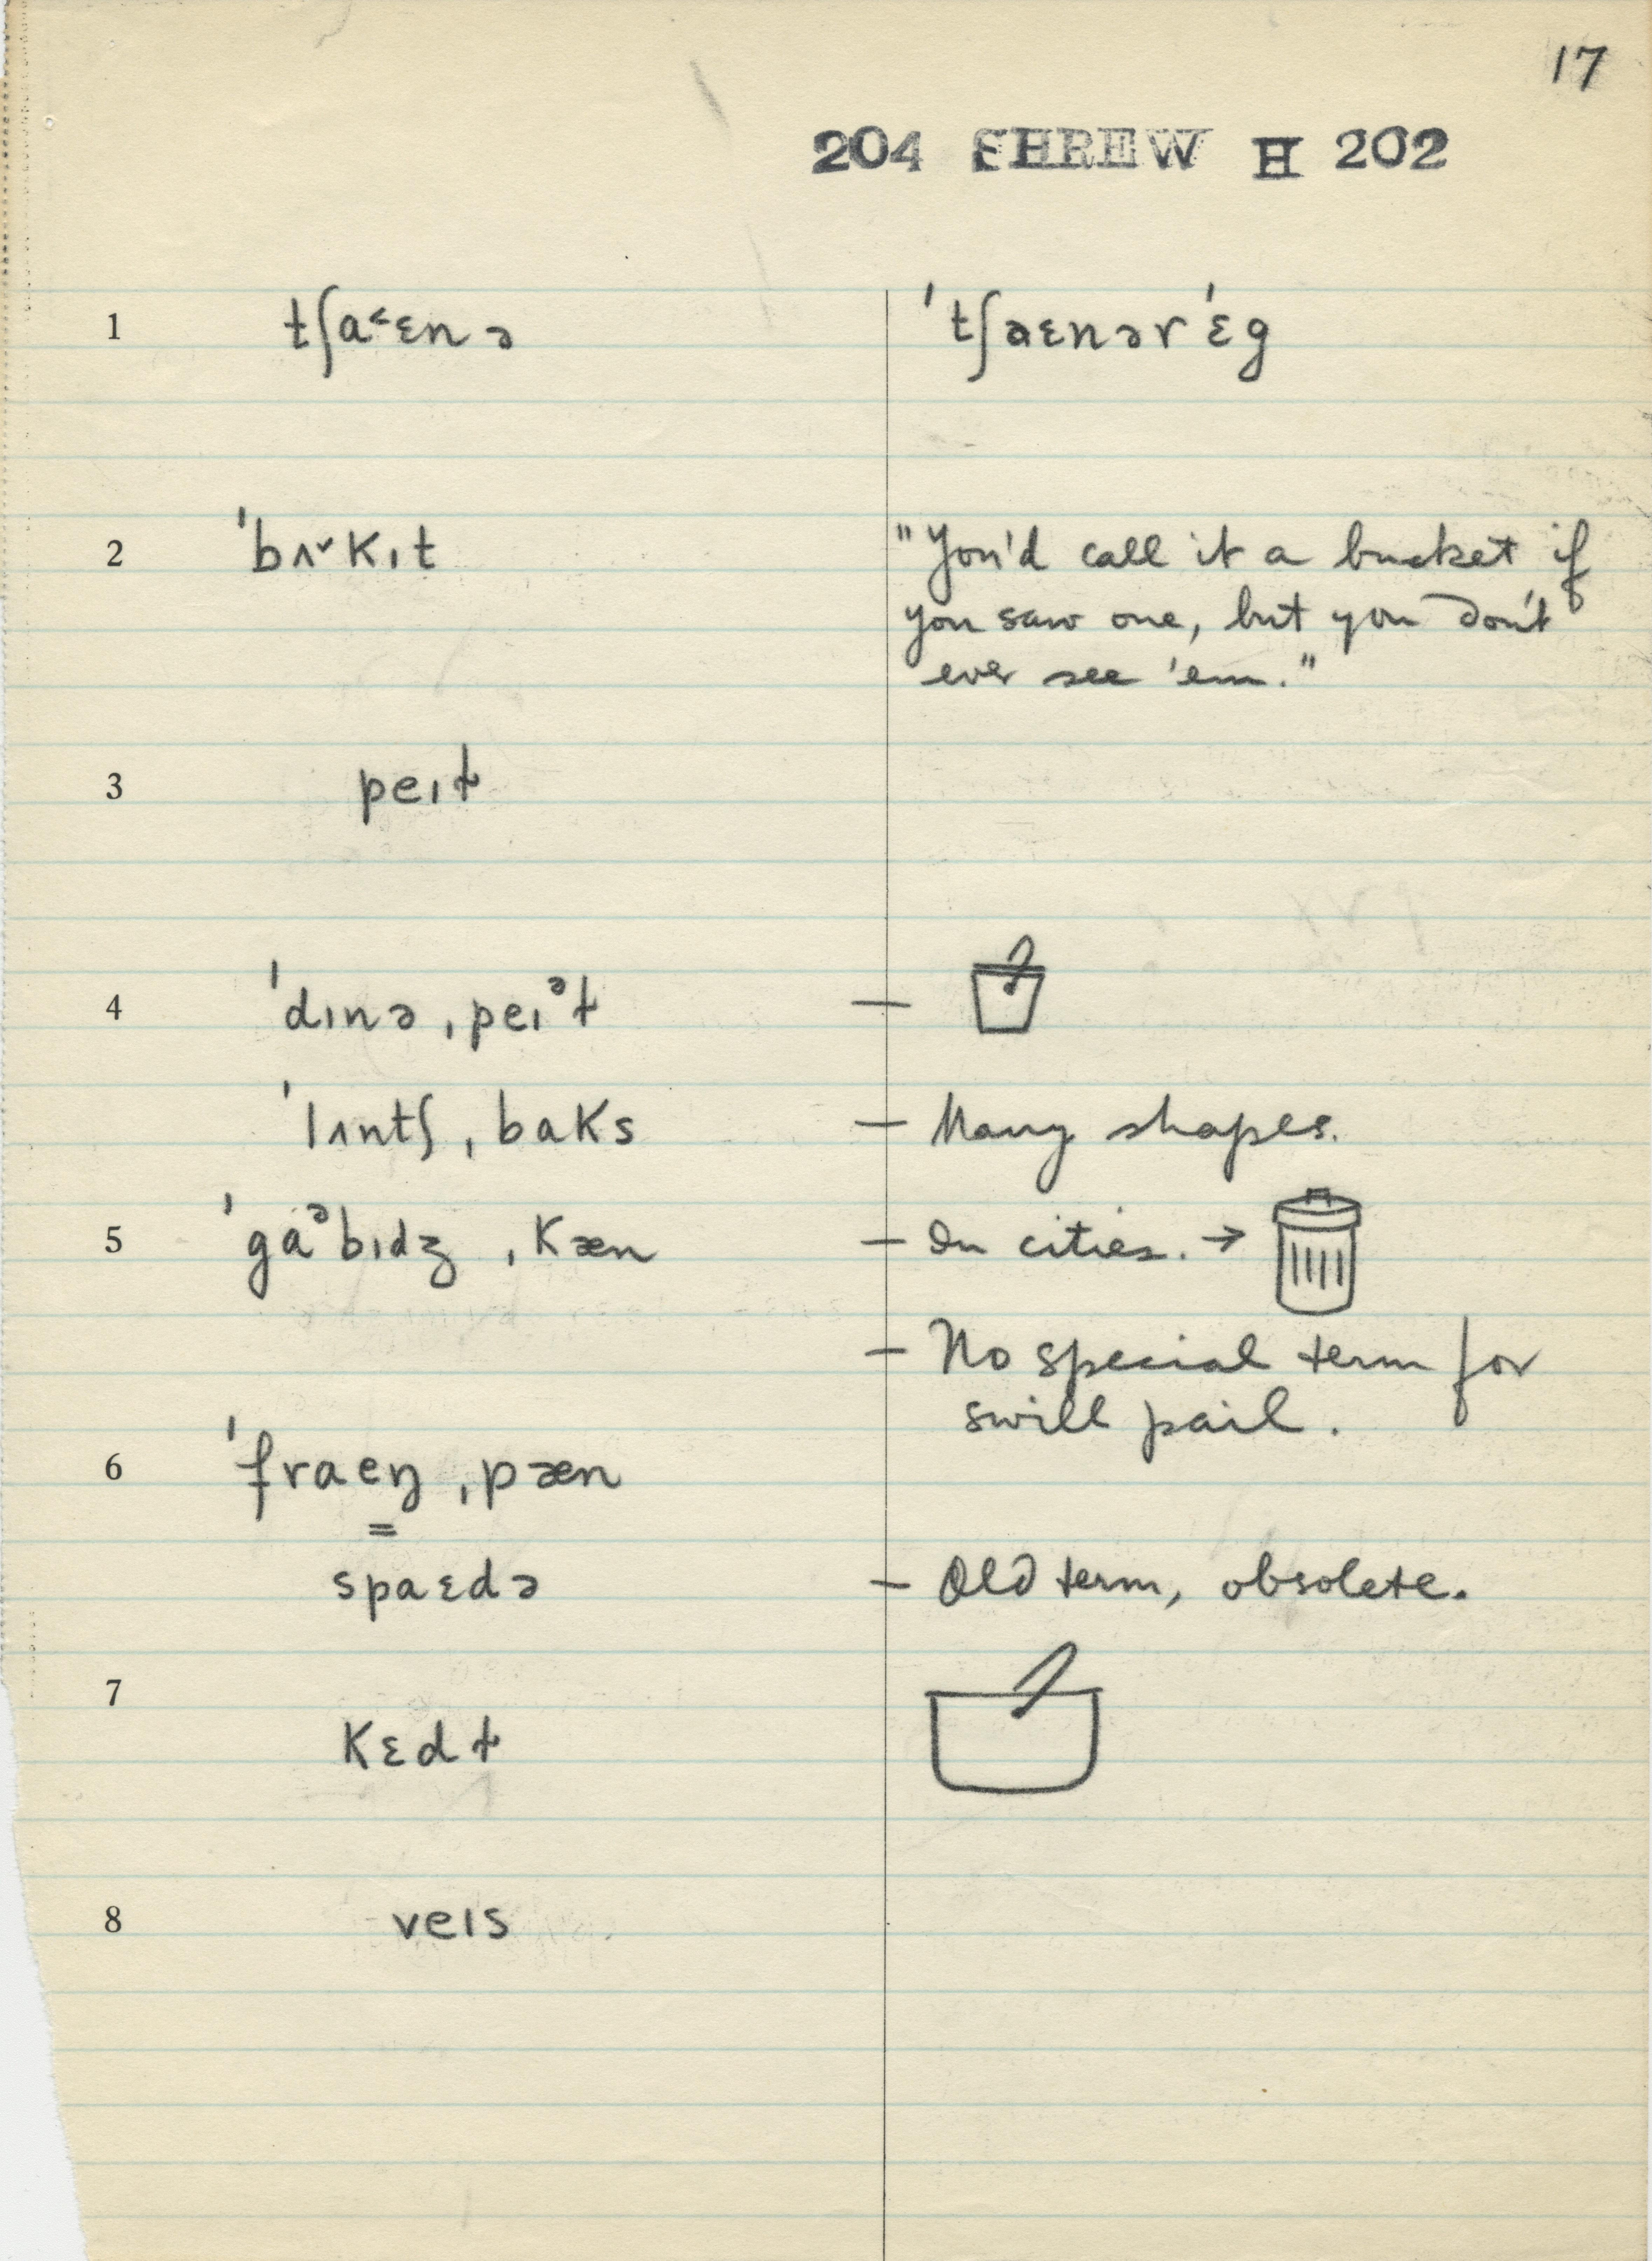 17
204 SHREW H 202
1 tʃa˂ɛnə 'tʃaɛnər'ɛg
2 'bʌ˅kɪt "You'd call it a bucket if
you saw one, but you don't
ever see 'em."
3 peɪɫ
4 'dɪnə ˌpeɪᵊɫ —
'lʌntʃ ˌbaks — Many shapes.
5 'gaᵊbɪdʒ ˌkæn — In cities. →
— No special term for
swill pail.
6 'fraeŋ ˌpæn
=
spaɛdə — Old term, obsolete.
7
kɛdɫ
8 veɪs